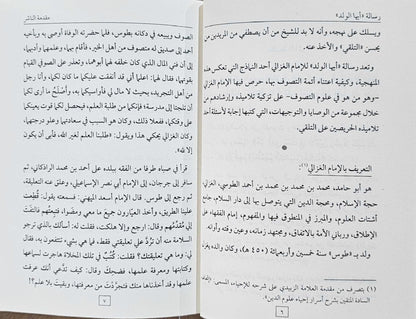 رسالة «أيها الولد»
ويسلك على نهجه، وأنه لا بد للشيخ من أن يصطفي من المريدين من
يحسن «التلقي» والأخذ عنه.
وتعد رسالة «أيها الولد» للإمام الغزالي أحد النماذج التي تعكس هذه
المنهجية، وكيفية اعتناء أئمة التصوف بها، حرص فيها الإمام الغزالي
-وهو من هو في علوم التصوف- على تزكية تلاميذه وإرشادهم من
خلال مجموعة من الوصايا والتوجيهات، التي كتبها إجابة لأسئلة أحد
تلاميذه الحريصين على التلقي.
التعريف بالإمام الغزالي(١):
هو أبو حامد، محمد بن محمد بن محمد بن أحمد الطوسي، الغزالي
حجة الإسلام، ومحجة الدين التي يتوصل بها إلى دار السلام، جامع
أشتات العلوم، والمبرز في المنطوق فيها والمفهوم، إمام الفقهاء على
الإطلاق، ورباني الأمة بالاتفاق، ومجتهد زمانه، وعين وقته وأوانه.
ولد بـ«طوس» سنة خمسين وأربعمائة (٤٥٠ هـ)، وكان والده يغزل
(١) بتصرف من مقدمة العلامة الزبيدي على شرحه للإحياء، المسمى: «إتحاف
السادة المتقين بشرح أسرار إحياء علوم الدين».
٦
مقدمة الناشر
الصوف ويبيعه في دكانه بطوس، فلما حضرته الوفاة أوصى به وبأخيه
أحمد إلى صديق له متصوف من أهل الخير، فأقبل على تعليمهما، إلى
أن فني المال الذي كان خلفه لهما أبوهما، وتعذر على الصوفي القيام
بقوتهما، فقال لهما: اعلما أني قد أنفقت عليكما ما كان لكما، وأنا رجل
من أهل التجريد، بحيث لا مال لي فأواسيكما به، وأصلح ما أرى لكما
أن تلجئا إلى مدرسة، فإنكما من طلبة العلم، فيحصل لكما قوت يعينكما
على وقتكما، ففعلا ذلك، وكان هو السبب في سعادتهما وعلو درجتهما،
وكان الغزالي يحكي هذا ويقول: «طلبنا العلم لغير الله، فأبى أن يكون
إلا لله».
قرأ في صباه طرفا من الفقه ببلده على أحمد بن محمد الراذكاني، ثم
سافر إلى جرجان، إلى الإمام أبي نصر الإسماعيلي، وعلق عنه التعليقة،
ثم رجع إلى طوس. قال الإمام أسعد الميهني: فسمعته يقول: قُطِعت
علينا الطريق، وأخذ العيارون جميع ما معي ومضوا، فتبعتهم فالتفت
إليَّ مُقدَّمهم وقال: ارجع ويحك وإلا هلكت، فقلت له: أسألك بالذي ترجو
السلامة منه أن تَرُدَّ عليَّ تعليقتي فقط، فما هي بشيء تنتفعون به، فقال
لي: وما هي تعليقتك؟ فقلت: كُتُبٌ في تلك المخلاة هاجرت لسماعها
وكتابتها ومعرفة علمها، فضحك وقال: كيف تدَّعي أنك عرفت
علمها وقد أخذناها منك فتجرَّدْتَ من معرفتها، وبقيتَ بلا علم؟!
٧